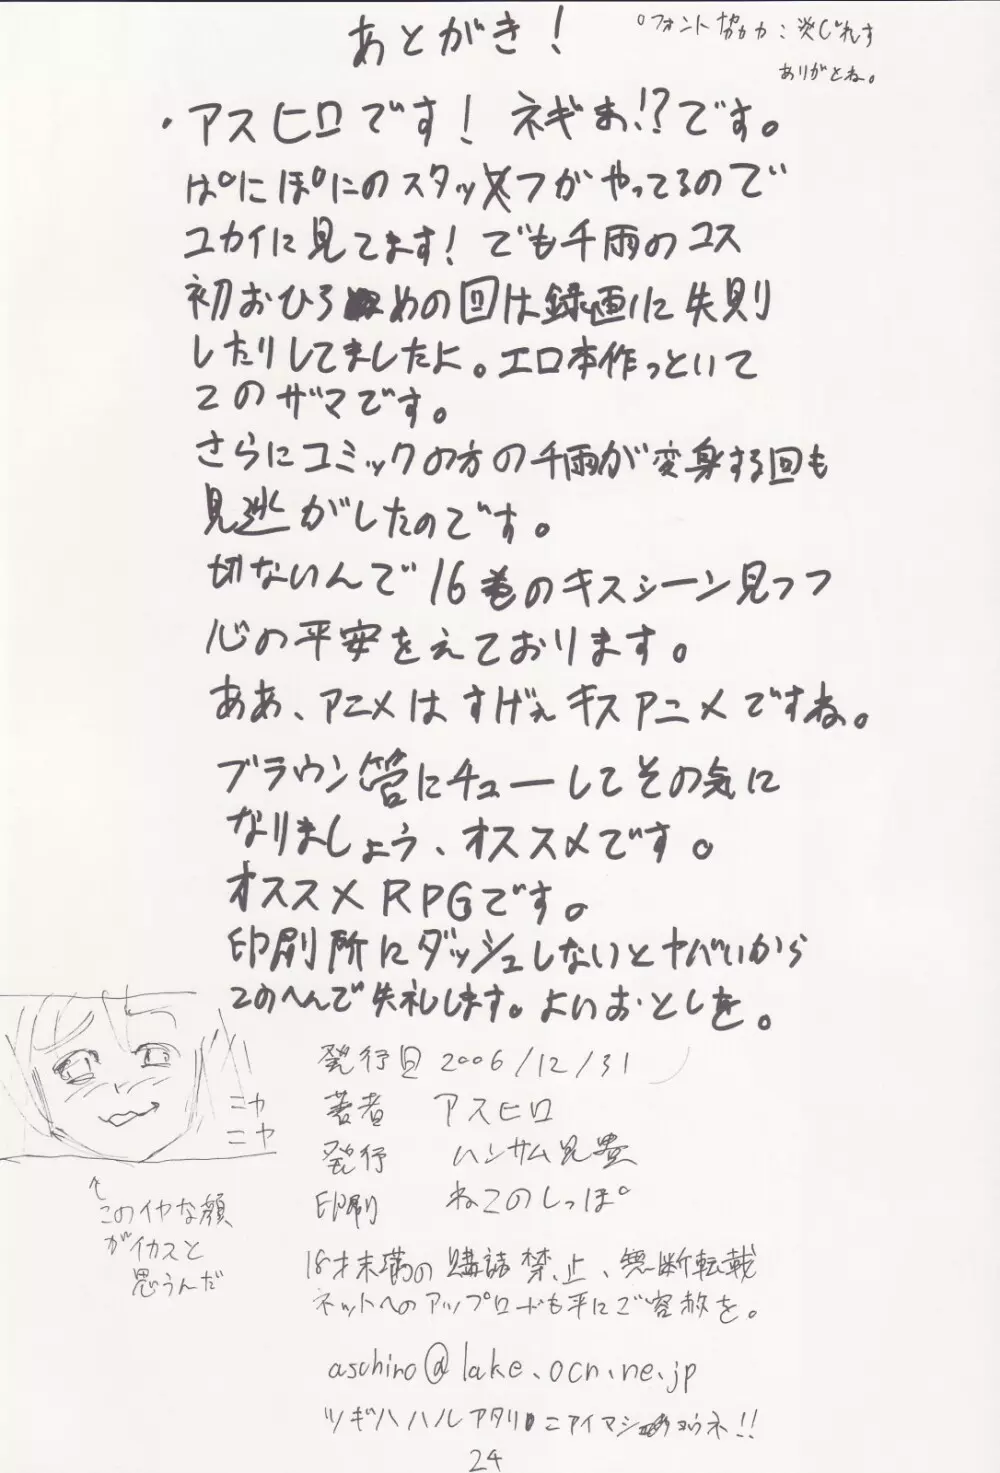 あとがき!
°フォント協力:炎じれす
ありがとね。
・アスヒロです! ネギま!?です。
ぱにぽにのスタッフがやってるので
ユカイに見てます! でも千雨のコス
初おひろめの回は録画に失則
したりしてましたよ。エロ本作っといて
このザマです。
さらにコミックの方の千雨が変身する回も
見逃がしたのです。
切ないんで16巻のキスシーン見つつ
心の平安をえております。
ああ、アニメはすげぇキスアニメですね。
ブラウン管にチューしてその気に
なりましょう、オススメです。
オススメRPGです。
印刷所にダッシュしないとヤバいから
このへんで失礼します。よいおとしを。
ニヤ
ニヤ
↑
このイヤな顔
がイカスと
思うんだ
発行日 2006/12/31
著者 アスヒロ
発行 ハンサム兄貴
印刷 ねこのしっぽ
18才末満の購読禁止、無断転載
ネットへのアップロードも平にご容赦を。
aschiro@lake.ocn.ne.jp
ツギハハルアタリニアイマショウネ!!
24